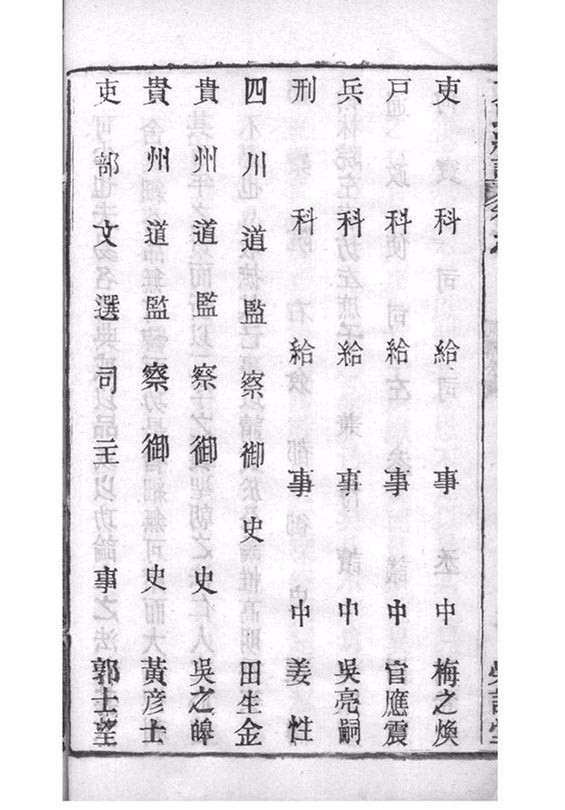 吏科給事中梅之煥
戶科給事中官應震
兵科給事中吳亮嗣
刑科給事中姜性
四川道監察御史田生金
貴州道監察御史吳之皞
貴州道監察御史黃彥士
吏部文選司主事郭士望